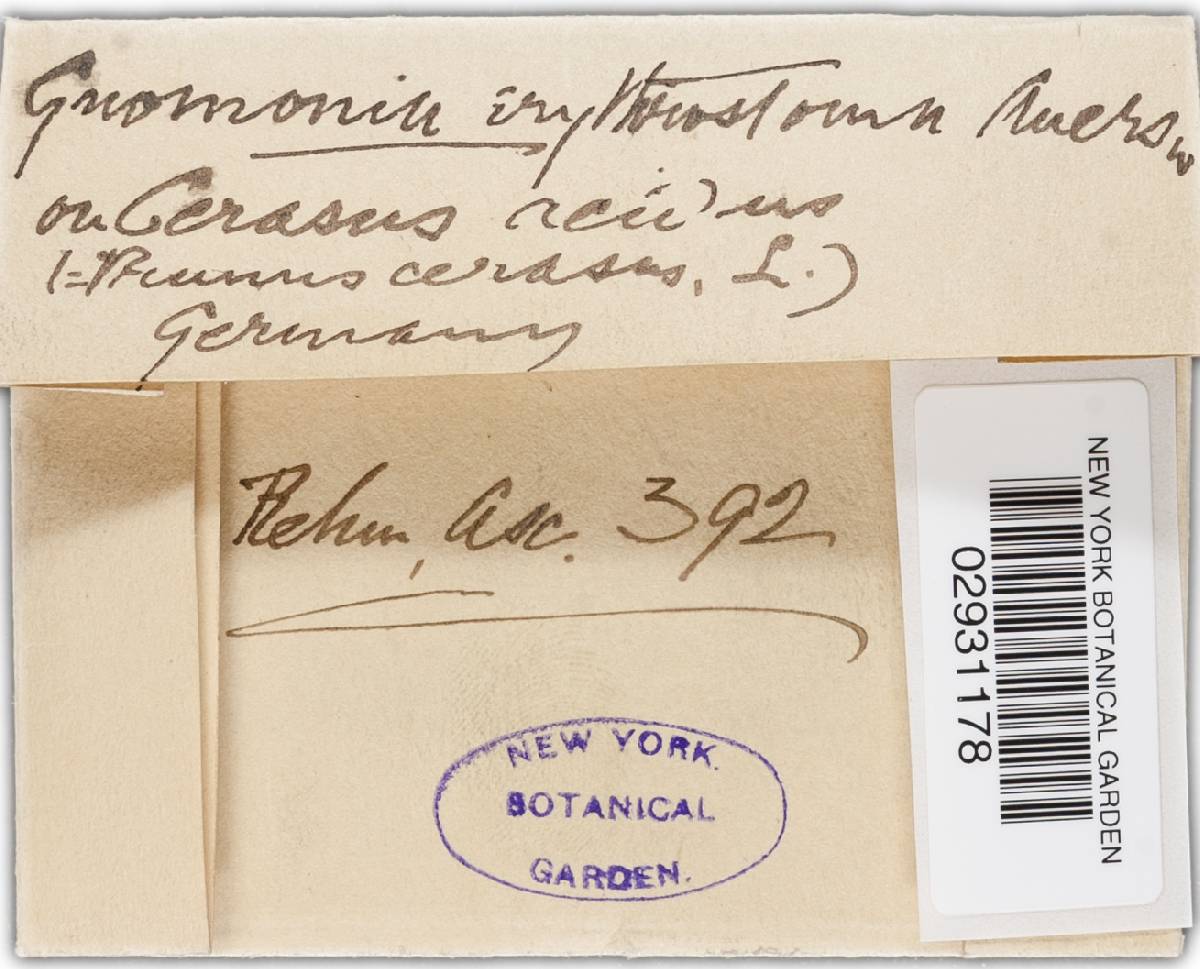 Gnomonia erythrostoma Auersw
on Cerasus acidus
(=Prunus cerasus, L.)
Germany
Rehm, Asc. 392
NEW YORK
BOTANICAL
GARDEN.
NEW YORK BOTANICAL GARDEN
02931178